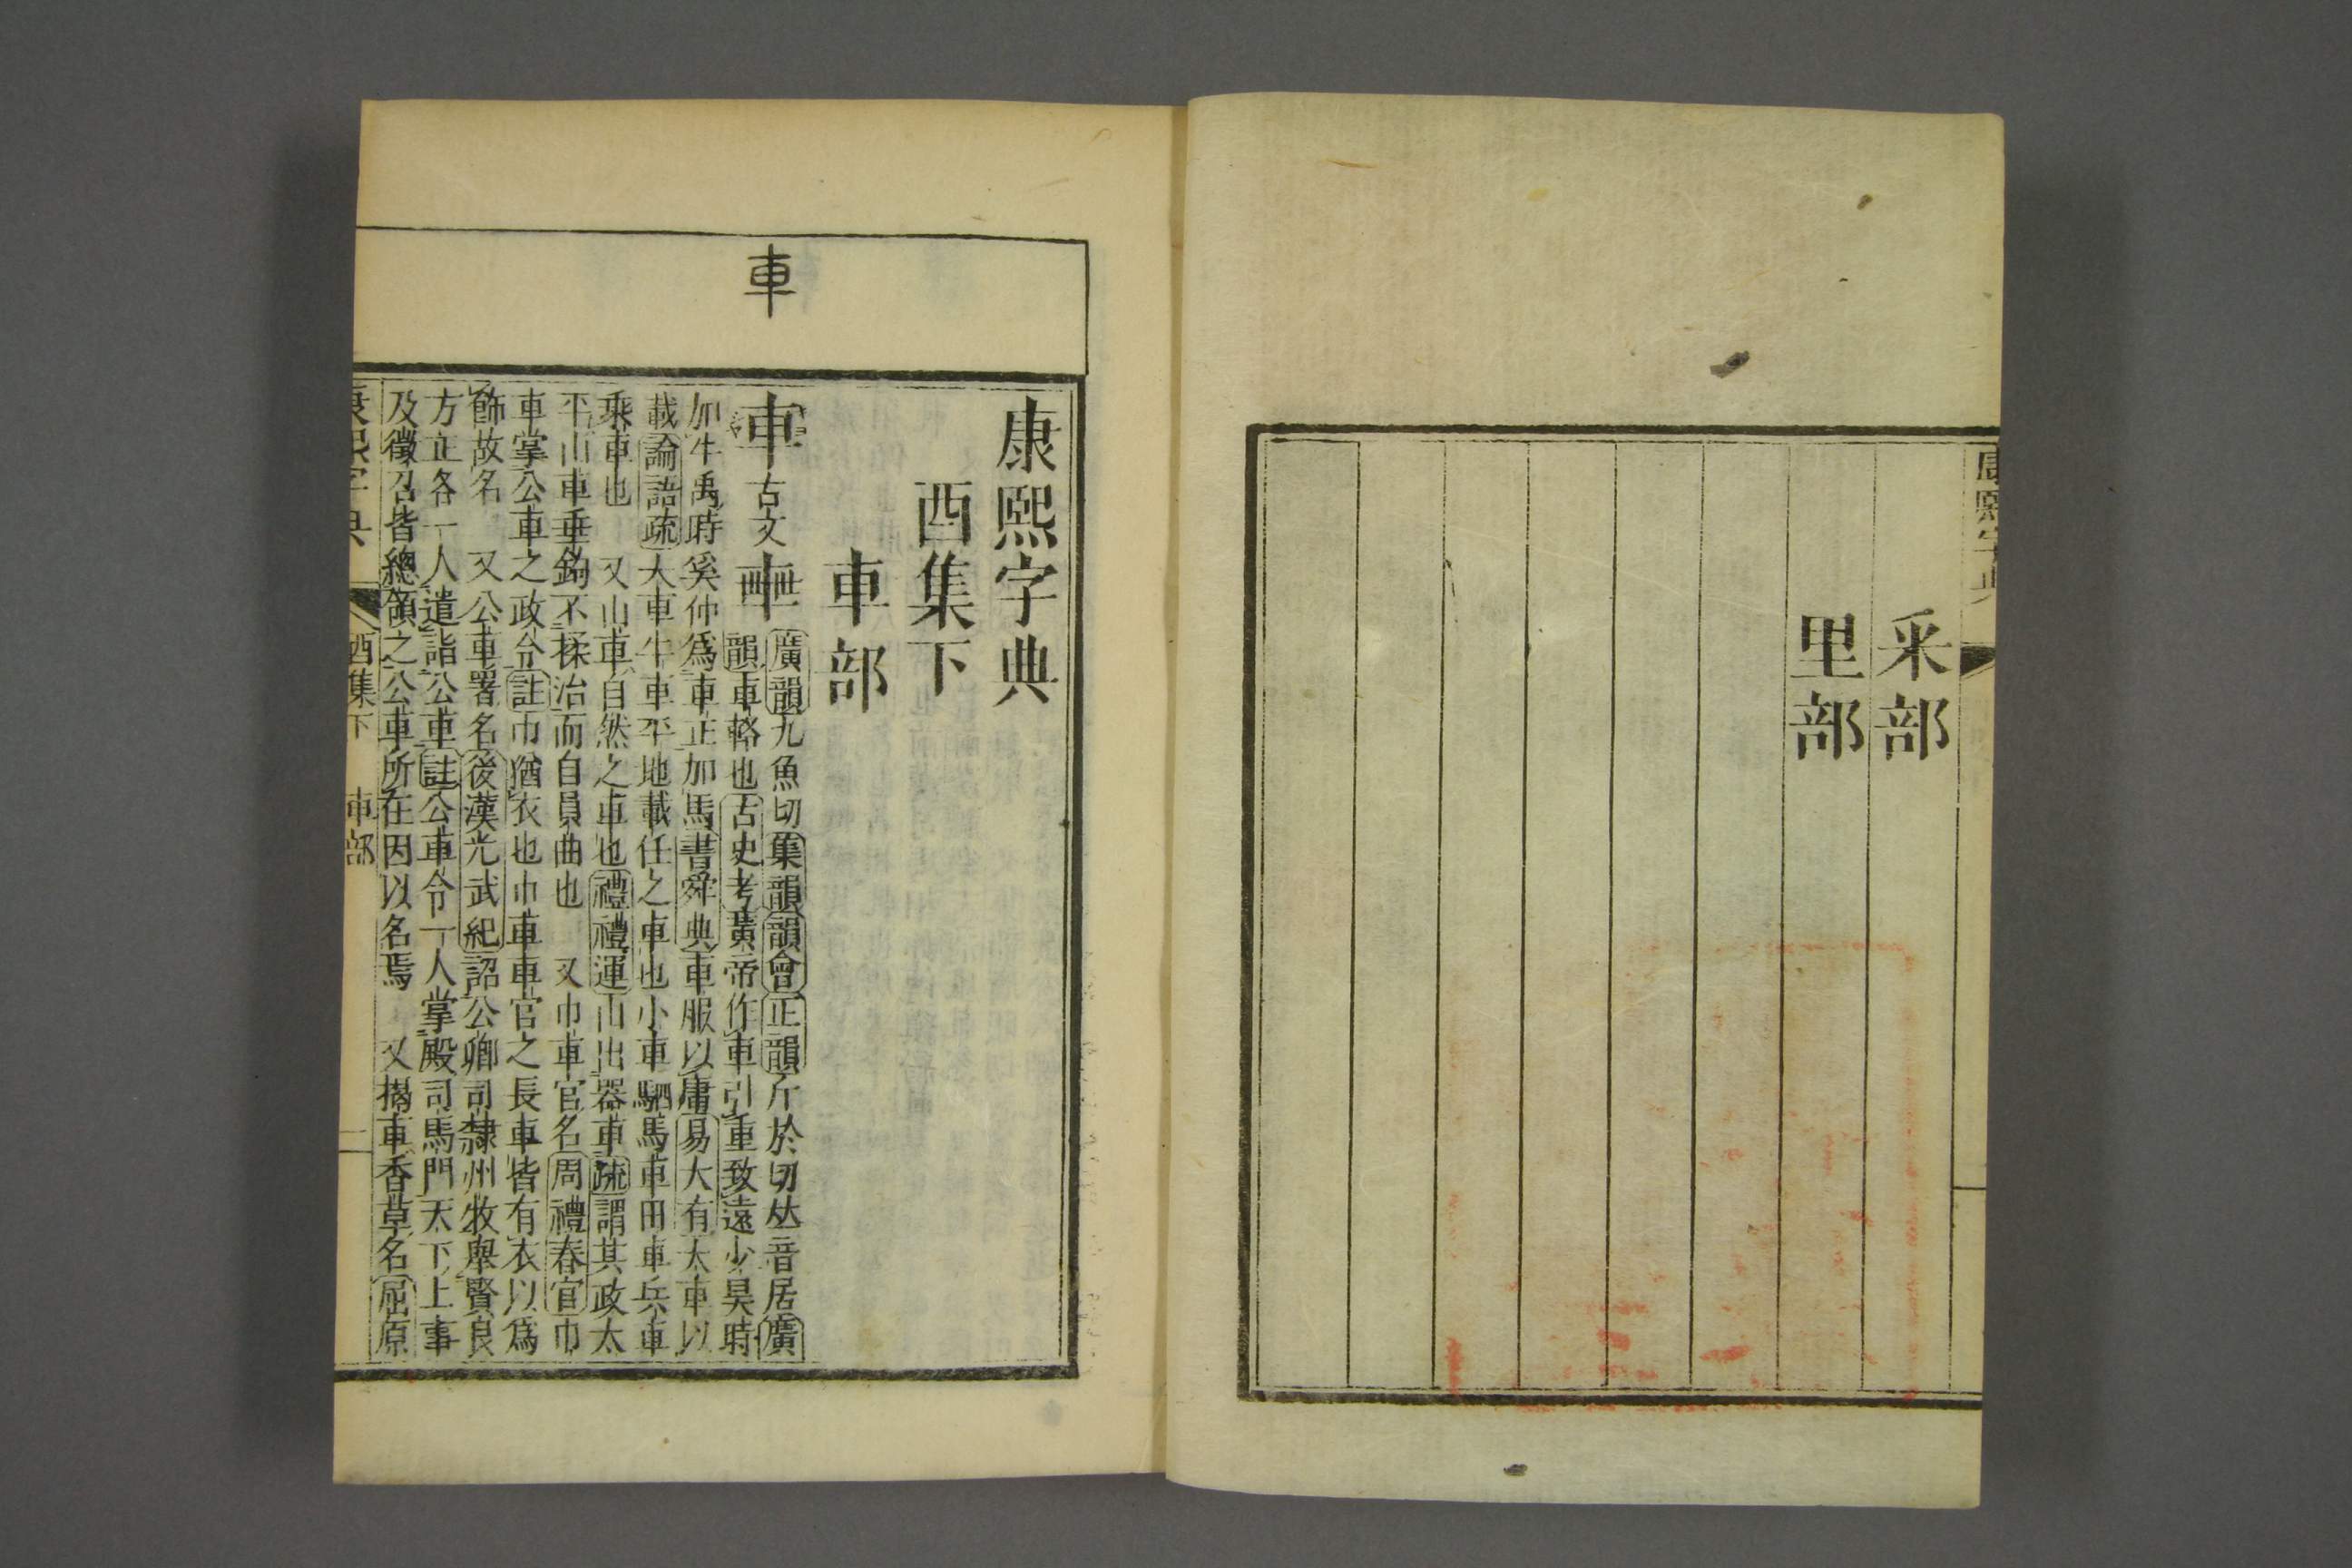 釆部
里部
車
康熙字典
酉集下
車部
車古文𨏖
廣韻九魚切集韻韻會正韻斤於切𠀤音居廣
韻車輅也古史考黃帝作車引重致遠少昊時
加牛禹時奚仲爲車正加馬書舜典車服以庸易大有大車以
載論語疏大車牛車平地載任之車也小車駟馬車田車兵車
乘車也　又山車自然之車也禮禮運山出器車疏謂其政太
平山車垂鉤不揉治而自員曲也　又巾車官名周禮春官巾
車掌公車之政令註巾猶衣也巾車車官之長車皆有衣以爲
飾故名　又公車署名後漢光武紀詔公卿司隸州牧舉賢良
方正各一人遣詣公車註公車令一人掌殿司馬門天下上事
及徵召皆總領之公車所在因以名焉　又揭車香草名屈原
康熙字典　酉集下　車部　一